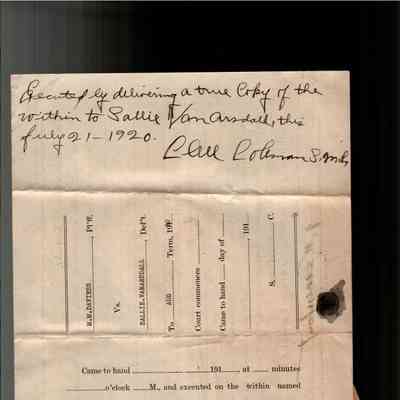 Executed by delivering a true Copy of the
within to Sallie VanArsdall, this
July 21-1920.
Clell Coleman S.M.C.
M.M.DAVIESS, Pl'ff.
Vs.
SALLIE VANARSDALL, Def't.
To Term, 192
Court commences
Came to hand day of
, 191
S. C.
Came to hand 191 at minutes
o'clock M., and executed on the within named